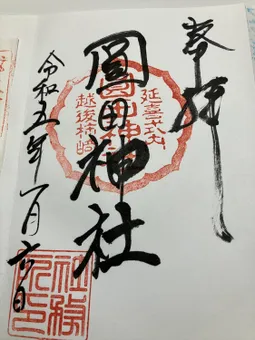 奉拝
延喜式内
圓田神社
越後柿崎
令和五年一月六日
社務所印